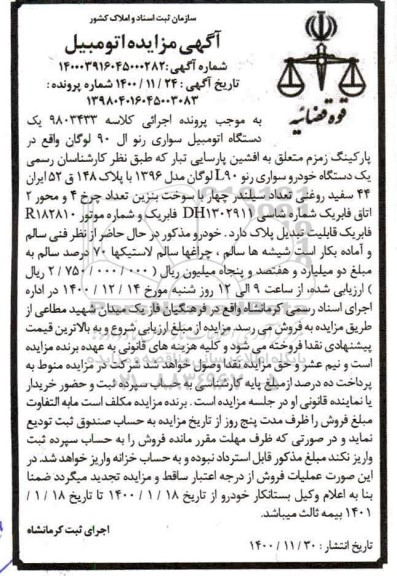 سازمان ثبت اسناد و املاک کشور
آگهی مزایده اتومبیل
شماره آگهی: ۱۴۰۰۰۳۹۱۶۰۴۵۰۰۰۲۸۲
تاریخ آگهی: ۲۴ / ۱۱ / ۱۴۰۰ شماره پرونده :
۱۳۹۸۰۴۰۱۶۰۴۵۰۰۳۰۸۳
قوه قضائیه
به موجب پرونده اجرائی کلاسه ۹۸۰۳۴۳۳ یک
دستگاه اتومبیل سواری رنو ال ۹۰ لوگان واقع در
پارکینگ زمزم متعلق به افشین پارسایی تبار که طبق نظر کارشناسان رسمی
یک دستگاه خودرو سواری رنو L۹۰ لوگان مدل ۱۳۹۶ با پلاک ۱۴۸ ق ۵۲ ایران
۴۴ سفید روغنی تعداد سیلندر چهار با سوخت بنزین تعداد چرخ ۴ و محور ۲
اتاق فابریک شماره شاسی DH۱۳۰۲۹۱۱ فابریک و شماره موتور R۱۸۲۸۱۰
فابریک قابلیت تبدیل پلاک دارد . خودرو مذکور در حال حاضر از نظر فنی سالم
و آماده بکار است شیشه ها سالم ، چراغها سالم لاستیکها ۷۰ درصد سالم به
مبلغ دو میلیارد و هفتصد و پنجاه میلیون ریال ( ۰۰۰ / ۰۰۰ / ۷۵۰ / ۲ ریال
) ارزیابی شده، از ساعت ۹ الی ۱۲ روز شنبه مورخ ۱۴ / ۱۲ / ۱۴۰۰ در اداره
اجرای اسناد رسمی کرمانشاه واقع در فرهنگیان فاز یک میدان شهید مطاعی از
طریق مزایده به فروش می رسد. مزایده از مبلغ ارزیابی شروع و به بالاترین قیمت
پیشنهادی نقدا فروخته می شود و کلیه هزینه های قانونی به عهده برنده مزایده
است و نیم عشر و حق مزایده نقدا وصول خواهد شد شرکت در مزایده منوط به
پرداخت ده درصد از مبلغ پایه کارشناسی به حساب سپرده ثبت و حضور خریدار
یا نماینده قانونی او در جلسه مزایده است . برنده مزایده مکلف است مابه التفاوت
مبلغ فروش را ظرف مدت پنج روز از تاریخ مزایده به حساب صندوق ثبت تودیع
نماید و در صورتی که ظرف مهلت مقرر مانده فروش را به حساب سپرده ثبت
واریز نکند مبلغ مذکور قابل استرداد نبوده و به حساب خزانه واریز خواهد شد. در
این صورت عملیات فروش از درجه اعتبار ساقط و مزایده تجدید میگردد ضمنا
بنا به اعلام وکیل بستانکار خودرو از تاریخ ۱۸ / ۱ / ۱۴۰۰ تا تاریخ ۱۸ / ۱ /
۱۴۰۱ بیمه ثالث میباشد.
اجرای ثبت کرمانشاه
تاریخ انتشار : ۳۰ / ۱۱ / ۱۴۰۰